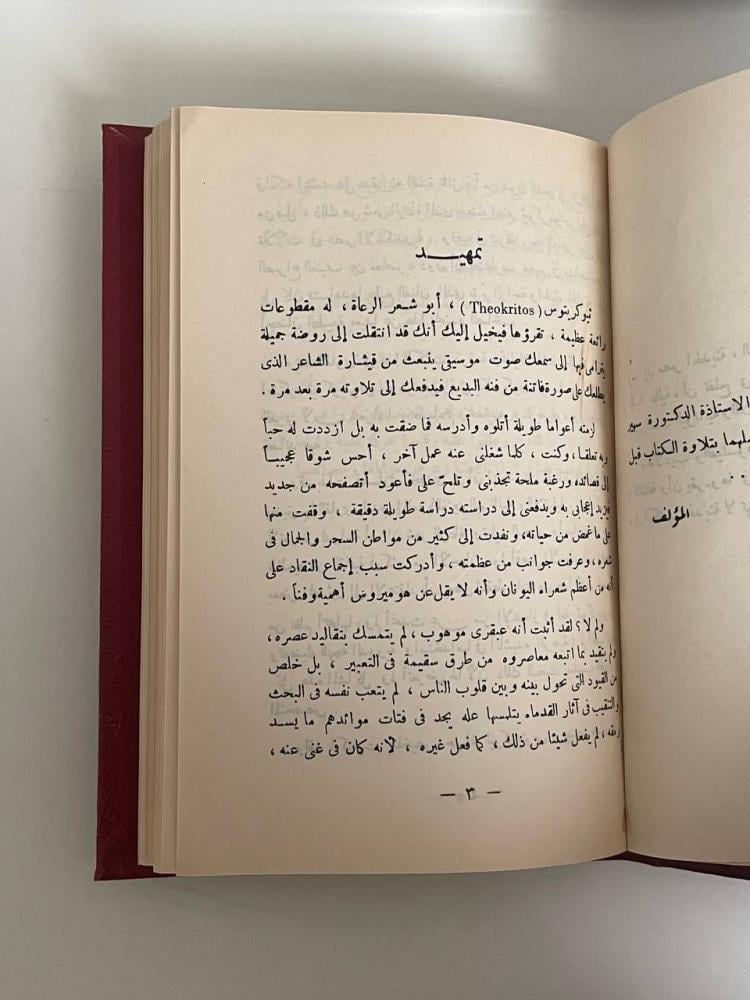 الاستاذة الدكتورة سهير
بتلاوة الكتاب قبل
. .
المؤلف
تمهيد
ثيوكريتوس ( Theokritos ) ، أبو شعر الرعاة ، له مقطوعات
رائعة عظيمة ، تقرؤها فيخيل إليك أنك قد انتقلت إلى روضة جميلة
يترامى فيها إلى سمعك صوت موسيقى ينبعث من قيثارة الشاعر الذى
يطلعك على صورة فاتنة من فنه البديع فيدفعك إلى تلاوته مرة بعد مرة .
لزمته أعواما طويلة أتلوه وأدرسه فما ضقت به بل ازددت له حباً
وبه تعلقا ، وكنت ، كلما شغلنى عنه عمل آخر ، أحس شوقا عجيباً
إلى قصائده ورغبة ملحة تجذبنى وتلحّ علىّ فأعود أتصفحه من جديد
فيزيد إعجابى به ويدفعنى إلى دراسته دراسة طويلة دقيقة ، وقفت منها
على ما غمض من حياته ، ونفدت إلى كثير من مواطن السحر والجمال فى
شعره ، وعرفت جوانب من عظمته ، وأدركت سبب إجماع النقاد على
أنه من أعظم شعراء اليونان وأنه لا يقل عن هوميروس أهمية وفناً .
ولم لا ؟ لقد أثبت أنه عبقرى موهوب ، لم يتمسك بتقاليد عصره ،
ولم يتقيد بما اتبعه معاصروه من طرق سقيمة فى التعبير ، بل خلص
من القيود التى تحول بينه وبين قلوب الناس ، لم يتعب نفسه فى البحث
والتنقيب فى آثار القدماء يتلمسها عله يجد فى فتات موائدهم ما يسد
رمقه ، لم يفعل شيئا من ذلك ، كما فعل غيره ، لأنه كان فى غنى عنه ،
— ٣ —